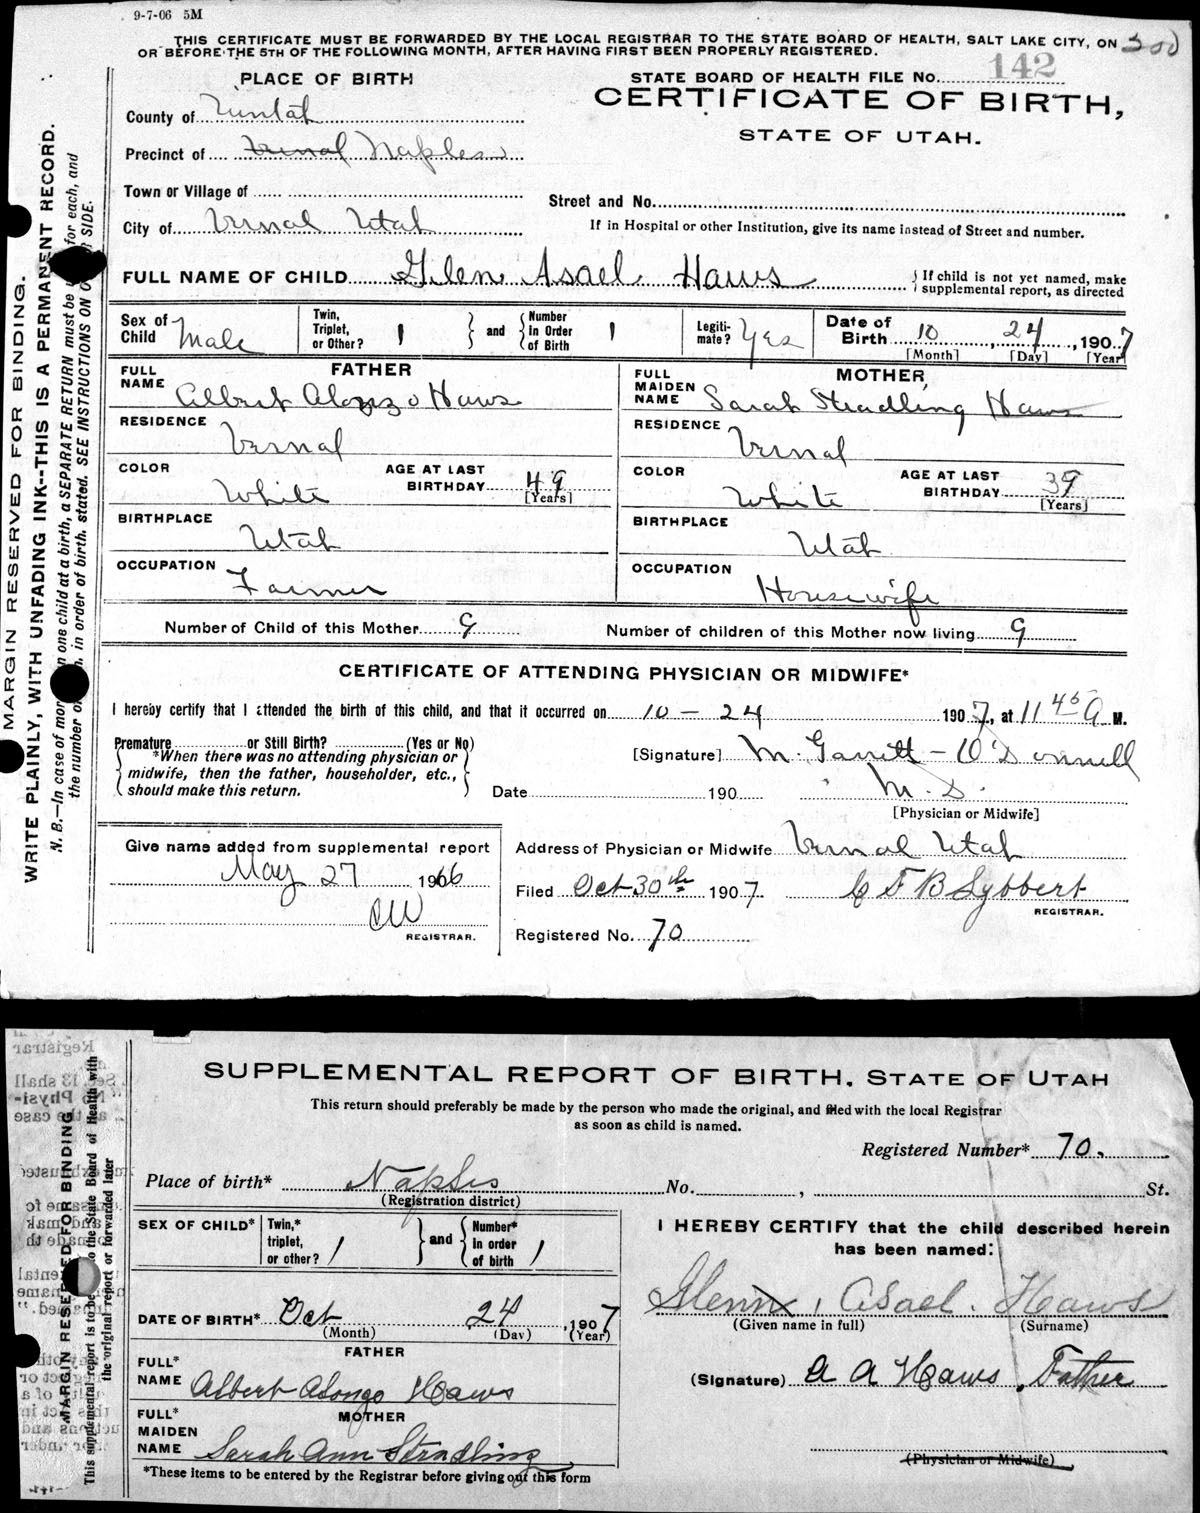 9-7-06 5M
THIS CERTIFICATE MUST BE FORWARDED BY THE LOCAL REGISTRAR TO THE STATE BOARD OF HEALTH, SALT LAKE CITY, ON
OR BEFORE THE 5TH OF THE FOLLOWING MONTH, AFTER HAVING FIRST BEEN PROPERLY REGISTERED.
PLACE OF BIRTH
STATE BOARD OF HEALTH FILE No. 142
CERTIFICATE OF BIRTH,
STATE OF UTAH.
County of Uintah
Precinct of Vernal Naples
Town or Village of
Street and No.
City of Vernal Utah
If in Hospital or other Institution, give its name instead of Street and number.
FULL NAME OF CHILD Glen Asael Haws
If child is not yet named, make supplemental report, as directed
Sex of Child Male
Twin, Triplet, or Other? 1 and Number In Order of Birth 1
Legiti-mate? Yes
Date of Birth 10, 24, 1907
[Month] [Day] [Year]
FATHER
FULL NAME Albert Alonzo Haws
RESIDENCE Vernal
COLOR White
AGE AT LAST BIRTHDAY 49 [Years]
BIRTHPLACE Utah
OCCUPATION Farmer
MOTHER
FULL MAIDEN NAME Sarah Stradling Haws
RESIDENCE Vernal
COLOR White
AGE AT LAST BIRTHDAY 39 [Years]
BIRTHPLACE Utah
OCCUPATION Housewife
Number of Child of this Mother 9
Number of children of this Mother now living 9
CERTIFICATE OF ATTENDING PHYSICIAN OR MIDWIFE*
I hereby certify that I attended the birth of this child, and that it occurred on 10 - 24 1907, at 11 45 a M.
Premature or Still Birth? (Yes or No)
*When there was no attending physician or
midwife, then the father, householder, etc.,
should make this return.
[Signature] M. Garrett - O'Donnell
Date 190 M.D.
[Physician or Midwife]
Give name added from supplemental report
May 27 1966
CW
REGISTRAR.
Address of Physician or Midwife Vernal Utah
Filed Oct 30th 1907 C F B Lybbert
REGISTRAR.
Registered No. 70
MARGIN RESERVED FOR BINDING.
WRITE PLAINLY, WITH UNFADING INK--THIS IS A PERMANENT RECORD.
N. B.—In case of more one child at a birth, a SEPARATE RETURN must be for each, and
the number in order of birth, stated. SEE INSTRUCTIONS ON SIDE.
SUPPLEMENTAL REPORT OF BIRTH, STATE OF UTAH
This return should preferably be made by the person who made the original, and filed with the local Registrar
as soon as child is named.
Registered Number* 70.
Place of birth* Naples No. , St.
(Registration district)
SEX OF CHILD*
Twin,* triplet, or other? 1 and Number* In order of birth 1
I HEREBY CERTIFY that the child described herein
has been named:
Glenn, Asael. Haws
(Given name in full) (Surname)
DATE OF BIRTH* Oct 24, 1907
(Month) (Day) (Year)
FATHER
FULL* NAME Albert Alonzo Haws
(Signature) A A Haws, Father
MOTHER
FULL* MAIDEN NAME Sarah Ann Stradling
(Physician or Midwife)
*These items to be entered by the Registrar before giving out this form
MARGIN RESERVED FOR BINDING
This supplemental report is to be the State Board of Health with
the original report or forwarded later